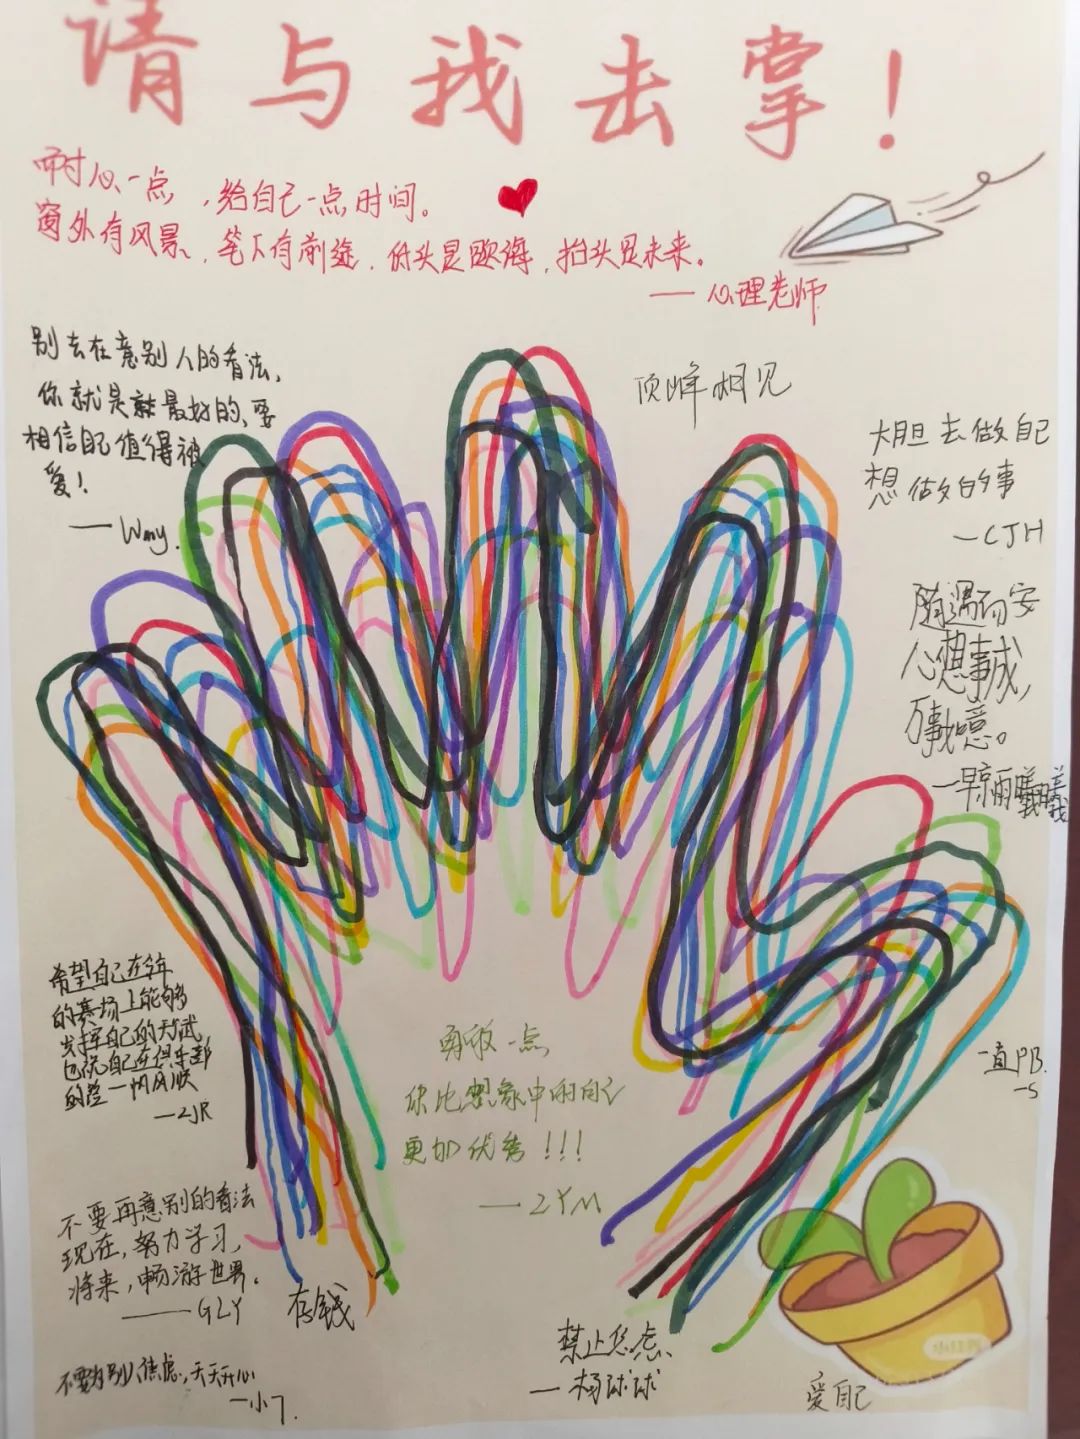 请与我去掌！
耐心一点，给自己一点时间。
窗外有风景，笔下有前途，低头是题海，抬头是未来。
——心理老师
别去在意别人的看法，
你就是最好的，要
相信自己值得被
爱！
——Wmy.
顶峰相见
大胆去做自己
想做的事
—CJH
随遇而安
心想事成，
万事如意。
希望自己在
的赛场上能够
发挥自己的
也祝自己在俱乐部
的 一帆风顺
—ZJR
勇敢一点
你比想象中的自己
更加优秀！！！
——ZYM
一直PB.
—S
不要再意别的看法
现在，努力学习，
将来，畅游世界。
——GLY
存钱
不要为别人焦虑，天天开心
—小7.
禁止焦虑
—杨球球
爱自己
小红书